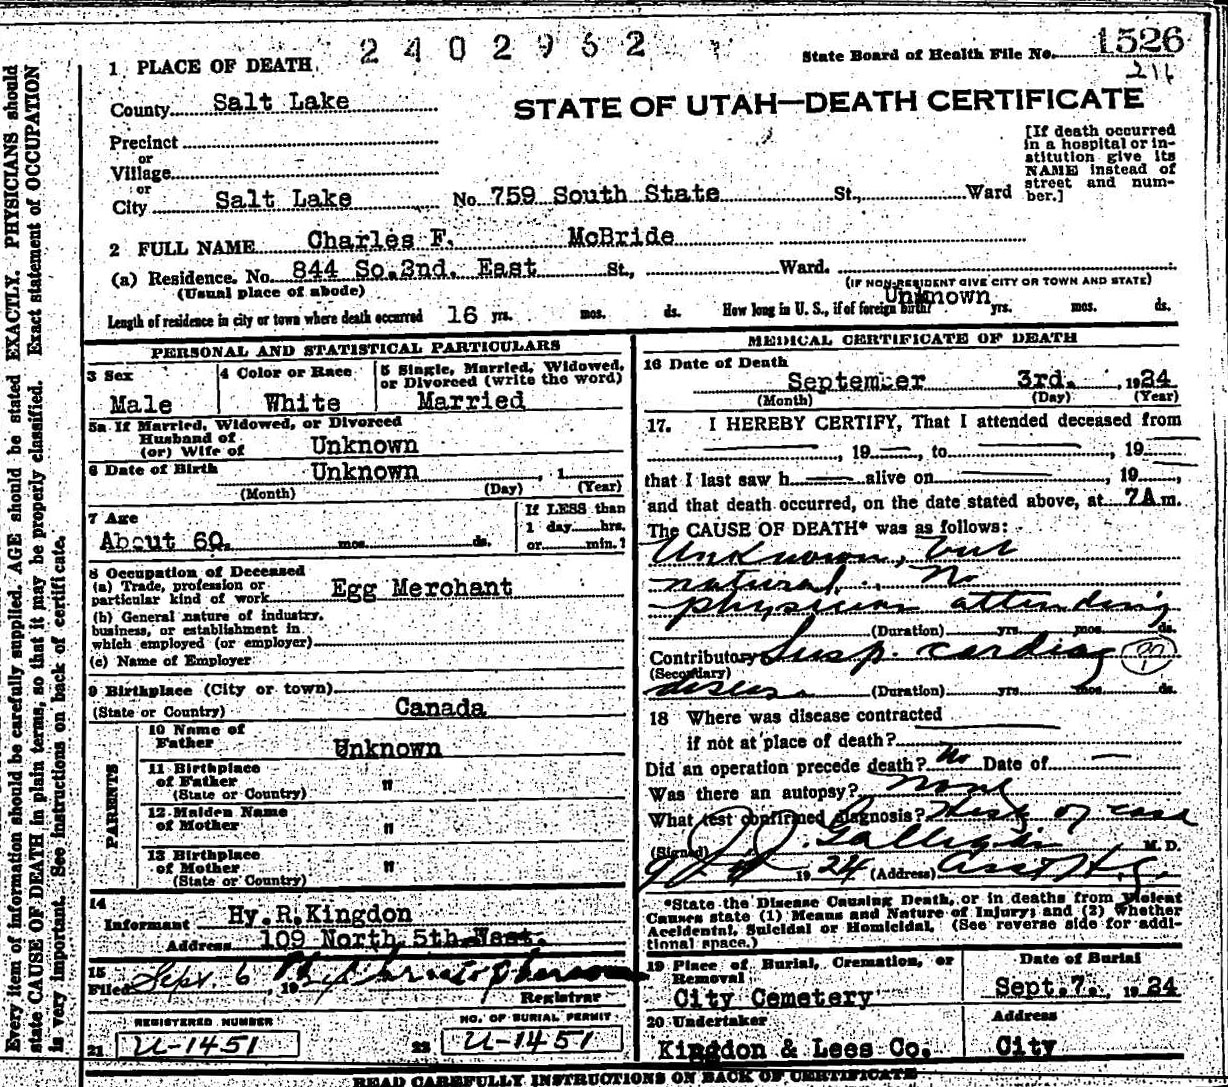 2402962
State Board of Health File No. 1526
216
1 PLACE OF DEATH
County Salt Lake
STATE OF UTAH—DEATH CERTIFICATE
Precinct
or
Village
or
City Salt Lake No. 759 South State St., Ward
[If death occurred
in a hospital or in-
stitution give its
NAME instead of
street and num-
ber.]
2 FULL NAME Charles F. McBride
(a) Residence. No. 844 So. 2nd. East St., Ward.
(Usual place of abode)
(IF NON-RESIDENT GIVE CITY OR TOWN AND STATE)
Length of residence in city or town where death occurred 16 yrs. mos. ds. How long in U. S., if of foreign birth? Unknown yrs. mos. ds.
PERSONAL AND STATISTICAL PARTICULARS
3 Sex
Male
4 Color or Race
White
5 Single, Married, Widowed,
or Divorced (write the word)
Married
5a If Married, Widowed, or Divorced
Husband of
(or) Wife of Unknown
6 Date of Birth Unknown , 1
(Month) (Day) (Year)
7 Age
About 60. mos. ds.
If LESS than
1 day hrs.
or min.?
8 Occupation of Deceased
(a) Trade, profession or
particular kind of work Egg Merchant
(b) General nature of industry,
business, or establishment in
which employed (or employer)
(c) Name of Employer
9 Birthplace (City or town)
(State or Country) Canada
PARENTS
10 Name of
Father Unknown
11 Birthplace
of Father "
(State or Country)
12 Maiden Name
of Mother "
13 Birthplace
of Mother "
(State or Country)
14
Informant Hy. R. Kingdon
Address 109 North 5th West.
15
Filed Sept. 6, 19
Registrar
REGISTERED NUMBER
21 U-1451
NO. OF BURIAL PERMIT
22 U-1451
MEDICAL CERTIFICATE OF DEATH
16 Date of Death
September 3rd. , 1924
(Month) (Day) (Year)
17. I HEREBY CERTIFY, That I attended deceased from
, 19 , to , 19
that I last saw h alive on , 19 ,
and that death occurred, on the date stated above, at 7A m.
The CAUSE OF DEATH* was as follows:
Unknown, but
natural. No
physician attending
(Duration) yrs. mos. ds.
Contributory Susp. cardiac
(Secondary)
disease (Duration) yrs. mos. ds.
18 Where was disease contracted
if not at place of death?
Did an operation precede death? No Date of
Was there an autopsy? None
What test confirmed diagnosis? Hist of case
(Signed) M. D.
1924 (Address)
*State the Disease Causing Death, or in deaths from Violent
Causes state (1) Means and Nature of Injury; and (2) Whether
Accidental, Suicidal or Homicidal. (See reverse side for addi-
tional space.)
19 Place of Burial, Cremation, or
Removal
City Cemetery
Date of Burial
Sept. 7. , 1924
20 Undertaker
Kingdon & Lees Co.
Address
City
READ CAREFULLY INSTRUCTIONS ON BACK OF CERTIFICATE
Every item of information should be carefully supplied. AGE should be stated EXACTLY. PHYSICIANS should
state CAUSE OF DEATH in plain terms, so that it may be properly classified. Exact statement of OCCUPATION
is very important. See instructions on back of certificate.